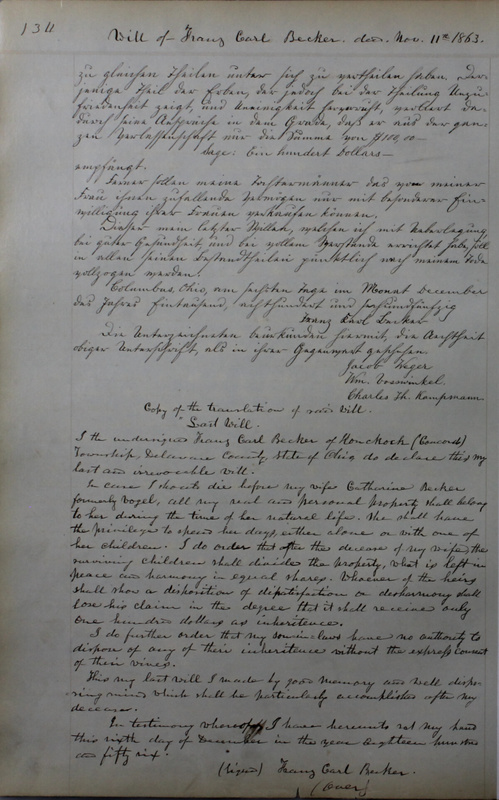 134
Will of Franz Carl Becker. dec. Nov. 11th 1863.
zu gleichen Theilen unter sich zu vertheilen haben. Der-
jenige Theil der Erben, der jedoch bei der Theilung Unzu-
friedenheit zeigt, und Uneinigkeit hervorruft, verliert da-
durch seine Ansprüche in dem Grade, daß er aus der gan-
zen Verlassenschaft nur die Summe von $100,00
sage: Ein hundert Dollars—
empfängt.
Ferner sollen meine Tochtermänner das von meiner
Frau ihnen zufallende Vermögen nur mit besonderer Ein-
willigung ihrer Frauen verkaufen können.
Dieser mein letzter Willen, welchen ich mit Ueberlegung
bei guter Gesundheit, und bei vollem Verstande errichtet habe, soll
in allen seinen Bestandtheilen pünktlich nach meinem Tode
vollzogen werden.
Columbus, Ohio, am sechsten Tage im Monat December
des Jahres Eintausend, achthundert und sechsundfünfzig
Franz Karl Becker
Die Unterzeichneten beurkunden hiermit, die Aechtheit
obiger Unterschrift, als in ihrer Gegenwart geschehen.
Jacob Weger
Wm. Voswinkel.
Charles Th. Kampmann
Copy of the translation of said Will.
Last Will.
I the undersigned Franz Carl Becker of Honckock (Concord)
Township, Delaware County, State of Ohio do declare this my
last and irrevocable will.
In case I should die before my wife Catharine Becker
formerly Vogel, all my real and personal property shall belong
to her during the time of her natural life. She shall have
the privilege to spend her days, either alone or with one of
her children. I do order that after the decease of my wife, the
surviving children shall divide the property, what is left in
peace and harmony in equal shares. Whoever of the heirs
shall show a disposition of dissatisfaction or desharmony shall
lose his claim in the degree that it shall receive only
one hundred dollars as inheritence.
I do further order that my son-in-laws have no authority to
dispose of any of their inheritence without the express consent
of their wives.
This my last will I made by good memory and well dispo-
sing mind which shall be particularly accomplished after my
decease.
In testimony whereoff I have hereunto set my hand
this sixth day of December in the year eighteen hundred
and fifty six.
(Signed) Franz Carl Becker.
(Over)